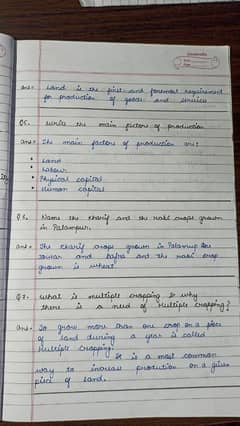 Ans:- Land is the first and foremost requirement
for production of goods and service
Q5. Write the main factors of production
Ans:- The main factors of production are:
• Land
• Labour
• Physical capital
• Human capital
Q6. Name the kharif and the rabi crops grown
in Palampur.
Ans:- The kharif crops grown in Palampur are
Jowar and bajra and the rabi crop
grown is wheat
Q7. What is multiple cropping & why
there is a need of Multiple cropping?
Ans:- To grow more than one crop on a piece
of land during a year is called
Multiple cropping.
It is a most common
way to increase production on a given
piece of land.